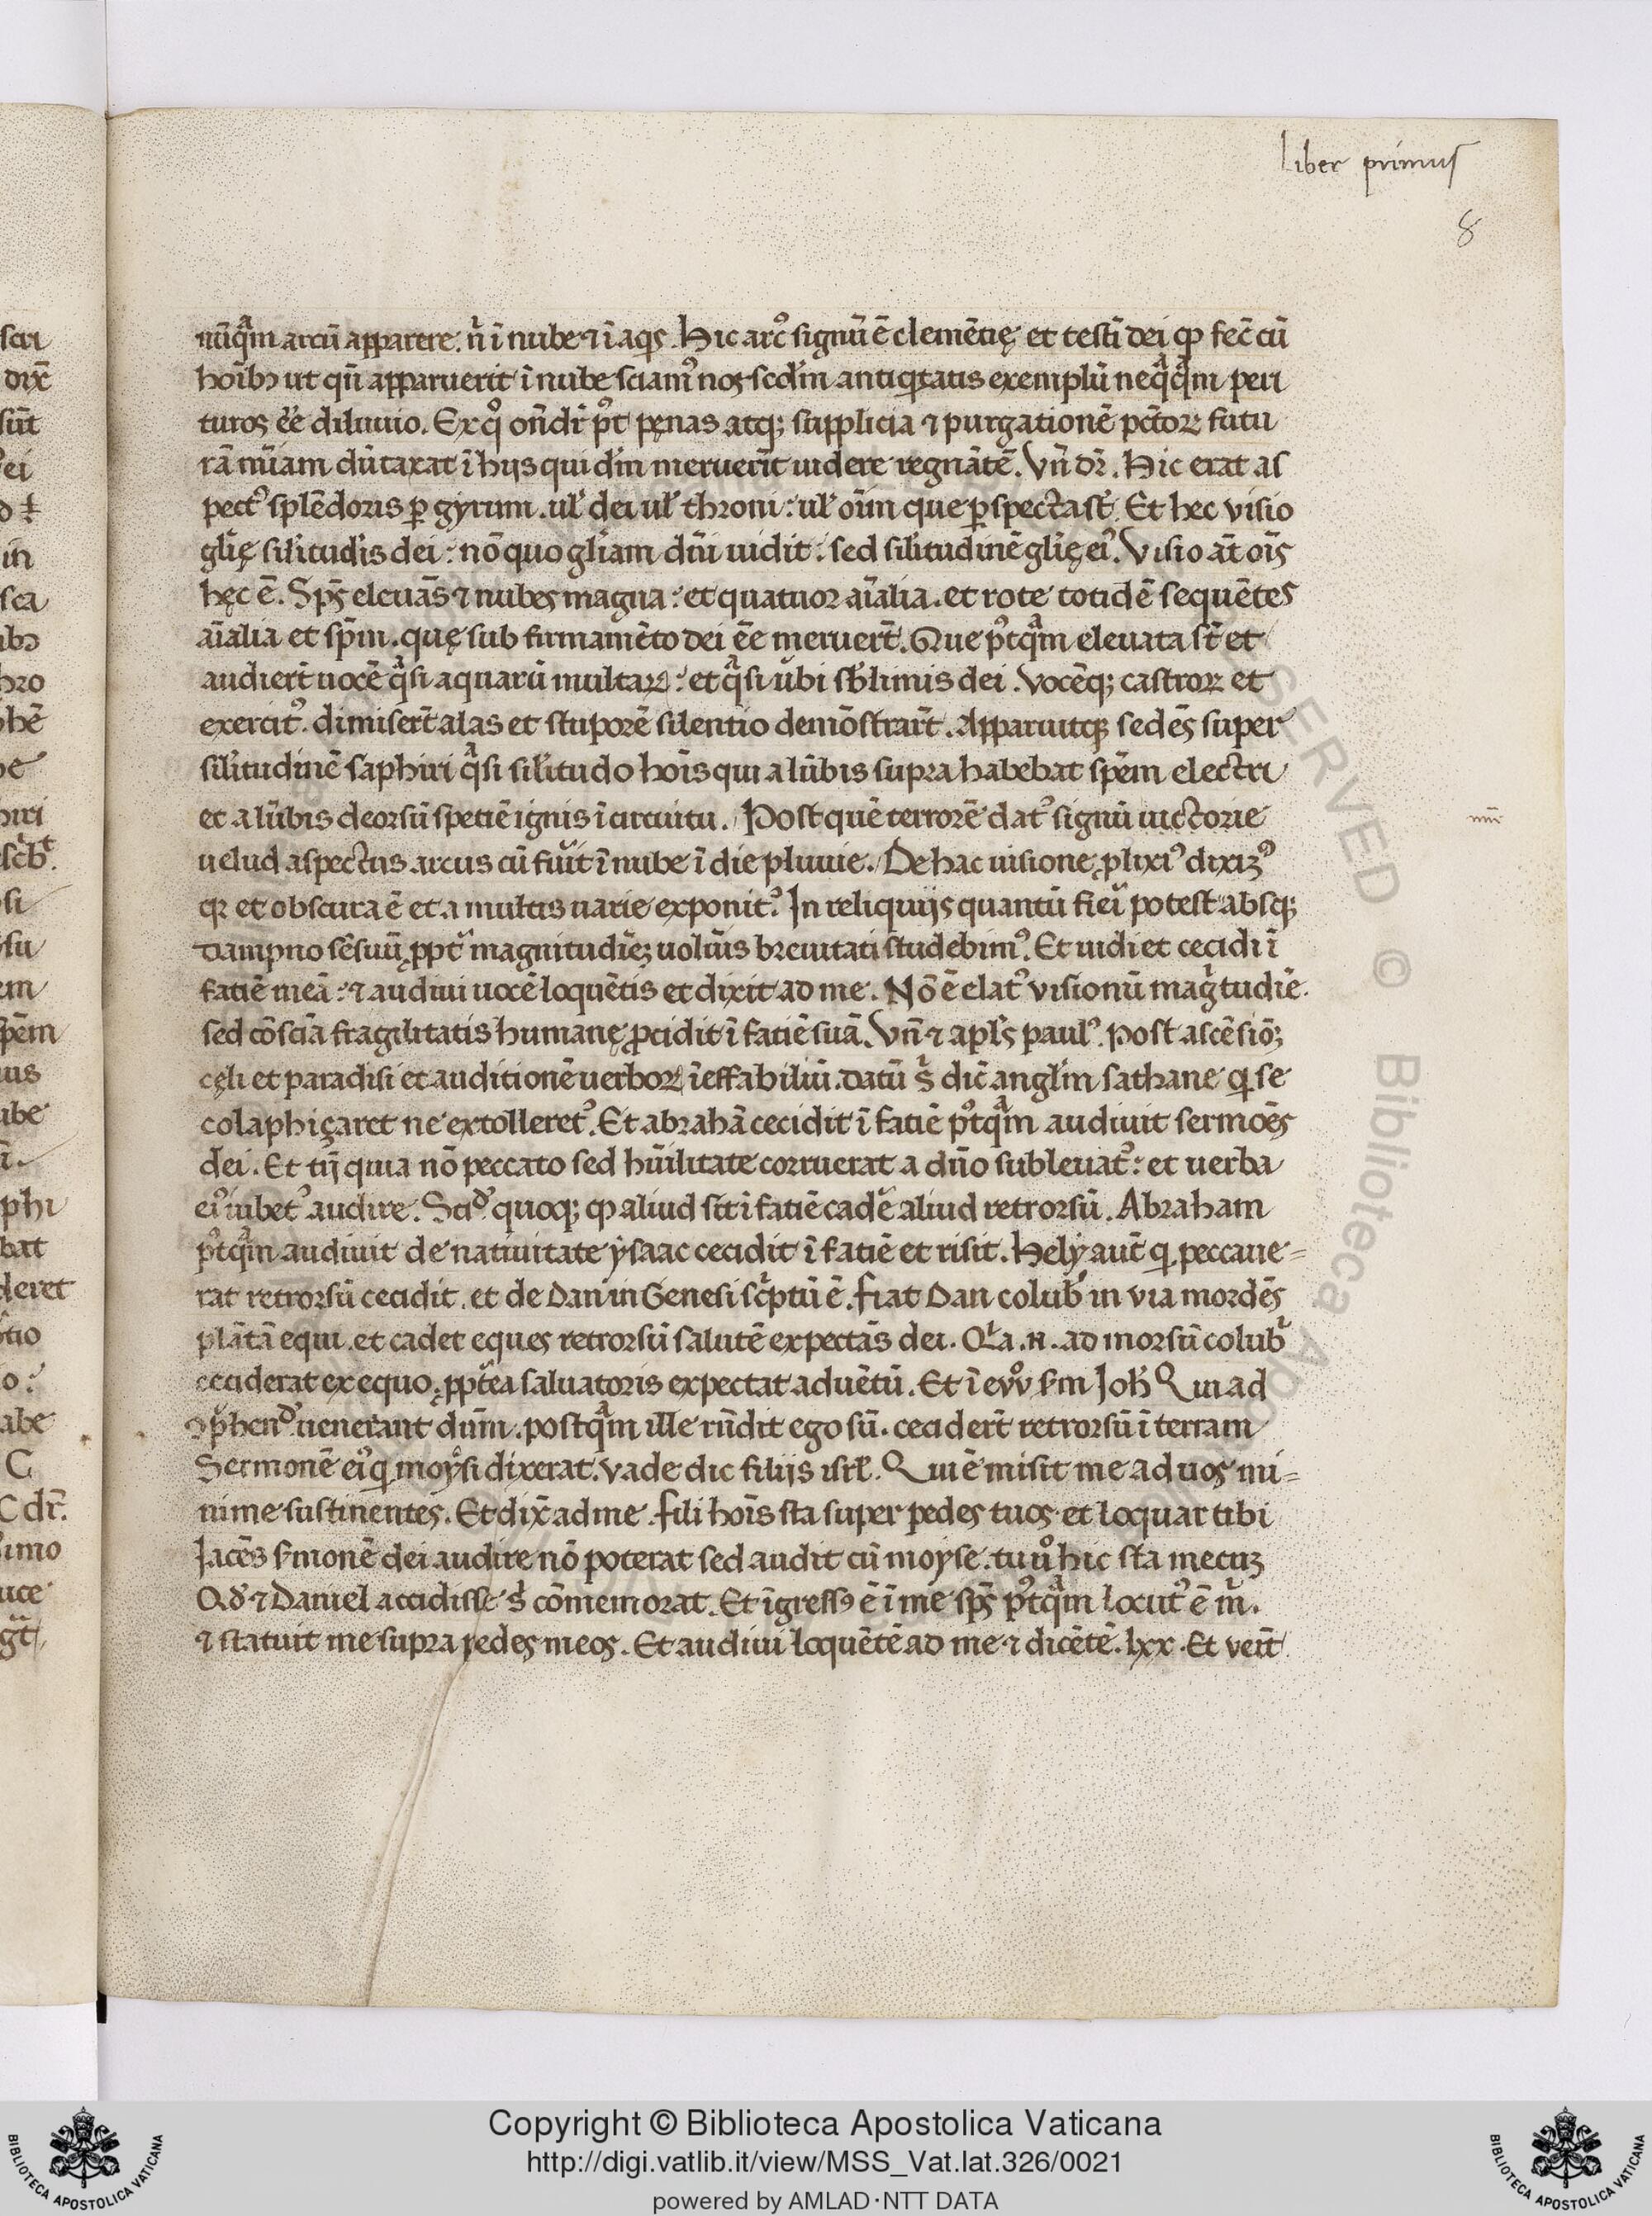 liber primus
8
nūq̄m arcū apparere. n̄ ī nube ⁊ ī aq̄s. Hic arc⁹ signū ē clemētię et testī dei qꝫ fec̄ cū
hoīb⁹ ut qn̄ apparuerit ī nube sciam⁹ nos scd̄m antiq̄tatis exemplū neq̄q̄m peri
turos ēē diluuio. Ex q⁰ on̄dr̄ p⁹t pęnas atqꝫ supplicia ⁊ purgationē pctōꝝ futu
rā mīam dūtaxat ī hijs qui dm̄ meruerīt uidere regnātē. Vn̄ dr̄. Hic erat as
pect⁹ splēdoris ꝑ gyrum. ul̄ dei ul̄ throni: ul̄ oīm que ꝑspecta st̄. Et hec visio
gl̄ię sil̄itudīs dei: nō quo gl̄iam dn̄i uidit: sed sil̄itudinē gl̄ię ei⁹. Visio āt oīs
hęc ē. Sp̄s eleuās ⁊ nubes magna: et quatuor aīalia. et rote totidē sequētes
aīalia et sp̄m. quę sub firmamēto dei ēe meruert̄. Que p⁹tq̄m eleuata st̄ et
audiert̄ uocē q̄si aquarū multaꝝ: et q̄si u̾bi sb̄limis dei. Vocēqꝫ castroꝝ et
exercit⁹. dimisert̄ alas et stuporē silentio demōstrart̄. Apparuitqꝫ sedēs super
sil̄itudinē saphiri q̄si sil̄itudo hoīs qui a lūbis supra habebat spēm electri
et a lūbis deorsū spetiē ignis ī circuitu. Post quē terrorē dat⁹ signū uictorie
uelud aspectus arcus cū fu̾it ī nube ī die pluuie. De hac uisione ꝓlixi⁹ dixim⁹
qꝛ et obscura ē et a multis uarie exponit⁹. In reliquijs quantū fieri potest absqꝫ
dampno sēsuū ꝓpt̾ magnitudīeꝫ uolūis breuitati studebim⁹. Et uidi et cecidi ī
fatiē meā: ⁊ audiui uocē loquētis et dixit ad me. Nō ē elat⁹ visionū mag̾tudīe.
sed cōscīa fragilitatis humanę ꝓcidit ī fatiē suā. Vn̄ ⁊ apl̄s paul⁹. Post ascēsiōꝫ
cęli et paradisi et auditionē uerboꝝ īeffabiliū. datū s̾ dic̄ angl̄m sathane q̾ se
colaphiçaret ne extolleret⁹. Et abrahā cecidit ī fatiē p⁹tq̄m audiuit sermōes
dei. Et tn̄ quia nō peccato sed hūilitate corruerat a dn̄o subleuat⁹: et uerba
ei⁹ iubet⁹ audire. Sciđ quoqꝫ qꝫ aliud sit ī fatiē cade̾ aliud retrorsū. Abraham
p⁹tq̄m audiuit de natiuitate ysaac cecidit ī fatiē et risit. Hely aut̄ q̾ peccaue=
rat retrorsū cecidit. et de Dan in Genesi sc̾ptū ē. fiat Dan colub̾ in via mordēs
plātā equi. et cadet eques retrorsū salutē expectās dei. Qł̄a .n. ad morsū colub̾
ceciderat ex equo. ꝓpt̾ea saluatoris expectat aduētū. Et ī euv̊ s̾m Joh̄ Qui ad
ꝯp̾henđ uenerant dn̄m. postq̄m ille rn̄dit ego sū. cecidert̄ retrorsū ī terram
Sermonē ei⁹ q̾ moysi dixerat. Vade dic filijs isrl̄. Qui ē misit me ad uos mi=
nime sustinentes. Et dix̄ ad me. fili hoīs sta super pedes tuos et loquar tibi
Jacēs s̾monē dei audire nō poterat sed audit cū moyse. tu u̾⁰ hic sta mecuꝫ
Qđ ⁊ Daniel accidisse s̾ cōmemorat. Et īgress⁹ ē ī me sp̄s p⁹tq̄m locut⁹ ē m̾.
⁊ statuit me supra pedes meos. Et audiui loquētē ad me ⁊ dicētē. lxx. Et veīt
Copyright © Biblioteca Apostolica Vaticana
http://digi.vatlib.it/view/MSS_Vat.lat.326/0021
powered by AMLAD·NTT DATA